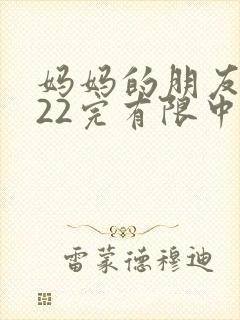 妈妈的朋友
22完有限中
雷蒙德穆迪